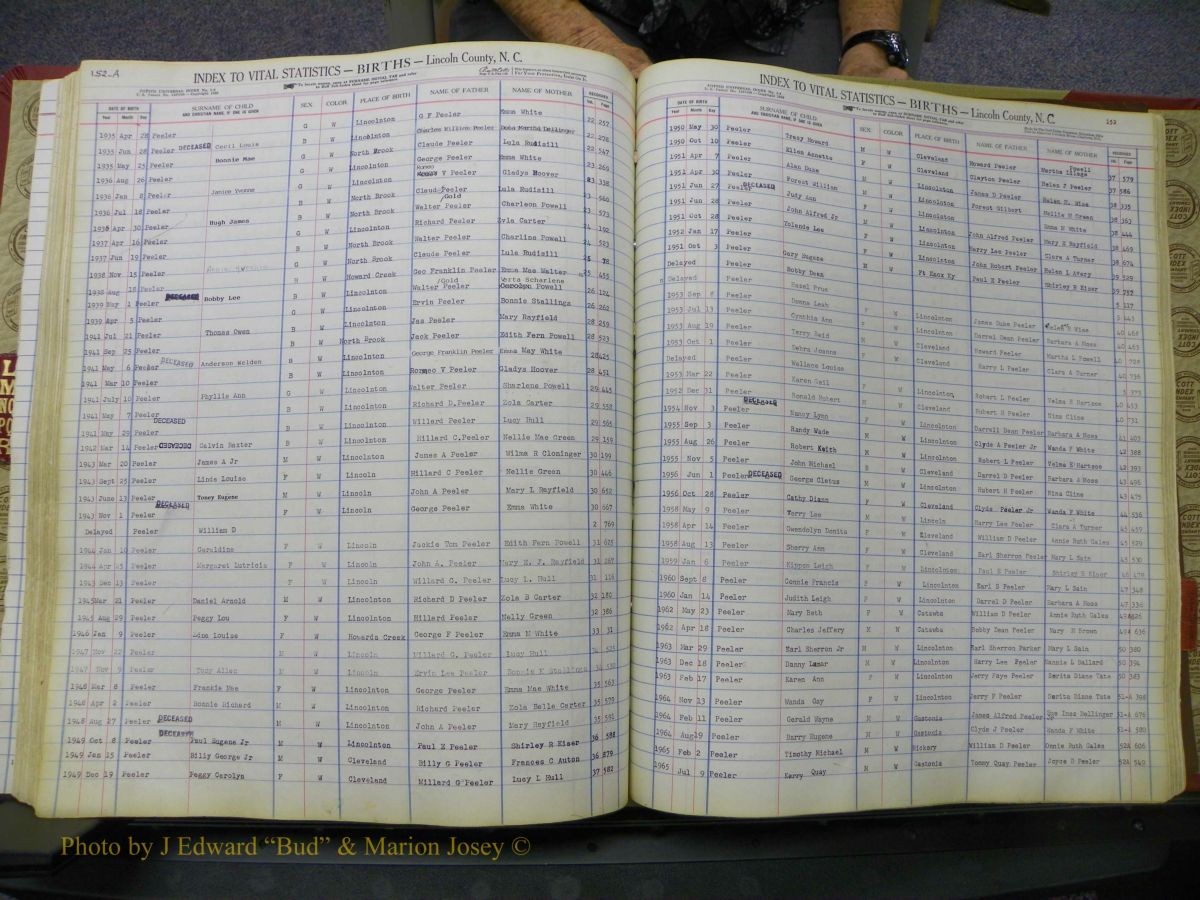 152-A
INDEX TO VITAL STATISTICS — BIRTHS — Lincoln County, N. C.
DATE OF BIRTH SURNAME OF CHILD SEX COLOR PLACE OF BIRTH NAME OF FATHER NAME OF MOTHER RECORDED
Year Month Day AND CHRISTIAN NAME, IF ONE IS GIVEN Vol. Page
1935 Apr 28 Peeler G W Lincolnton G F Peeler Emma White 22 257
1935 Jun 28 Peeler DECEASED Cecil Louis B W Lincolnton Charles William Peeler 22 278
1935 May 25 Peeler Bonnie Mae G W North Brook Claude Peeler Lula Rudisill 22 547
1936 Aug 26 Peeler G W Lincolnton George Peeler Emma White 23 269
1936 Jan 8 Peeler Janice Yvonne V Peeler Gladys Hoover 23 338
1936 Jul 18 Peeler North Brook Claude Peeler Lula Rudisill 23 560
1936 Apr 30 Peeler Hugh James North Brook Walter Gold Peeler Charleen Powell 23 573
1937 Apr 16 Peeler Lincolnton Richard Peeler Zvla Carter 24 192
1937 Jun 19 Peeler North Brook Walter Peeler Charline Powell 24 523
1938 Nov 15 Peeler North Brook Claude Peeler Lula Rudisill 25 78
1938 Aug 18 Peeler Howard Creek Geo Franklin Peeler Emma Mae Walter 25 455
1939 May 1 Peeler DECEASED Bobby Lee B W Lincolnton Walter Gold Peeler Powell 26 124
1939 Apr 5 Peeler G W Lincolnton Ervin Peeler Bonnie Stallings 26 262
1941 Jul 21 Peeler Thomas Owen B W Lincolnton Jas Peeler Mary Rayfield 28 259
1941 Sep 25 Peeler B W North Brook Jack Peeler Edith Fern Powell 28 523
1941 May 6 Peeler DECEASED Anderson Welden B W Lincolnton George Franklin Peeler Emma May White 28 425
1941 Mar 10 Peeler B W Lincolnton Romeo V Peeler Gladys Hoover 28 451
1941 July 10 Peeler Phyllis Ann G W Lincolnton Walter Peeler Sharlene Powell 29 445
1941 May 7 Peeler B W Lincolnton Richard D. Peeler Zola Carter 29 558
DECEASED
1941 May 29 Peeler G W Lincolnton Willard Peeler Lucy Hull 29 565
1942 Mar 14 Peeler DECEASED Calvin Baxter B W Lincolnton Hillard C. Peeler Nellie Mae Green 29 159
1943 Mar 20 Peeler James A Jr M W Lincoln James A Peeler Wilma R Cloninger 30 199
1943 Sept 25 Peeler Linis Louise F W Lincoln Hillard C Peeler Nellie Green 30 446
1943 June 13 Peeler Toney Eugene M W Lincoln John A Peeler Mary L Rayfield 30 652
1943 Nov 1 Peeler DECEASED F W Lincoln George Peeler Emma White 30 667
Delayed Peeler William D 2 769
1944 Jan 10 Peeler Geraldine F W Lincoln Jackie Tom Peeler Edith Fern Powell 31 625
1944 Apr 15 Peeler Margaret Lutricia F W Lincoln John A. Peeler Mary M. J. Rayfield 31 267
1943 Dec 13 Peeler F W Lincoln Willard G. Peeler Lucy L. Hull 31 116
1945 Mar 21 Peeler Daniel Arnold M W Lincoln Richard D Peeler Zola B Carter 32 180
1945 Aug 29 Peeler Peggy Lou F W Lincoln Hillard Peeler Nelly Green 32 386
1946 Jan 9 Peeler Edna Louise F W Howards Creek George F Peeler Emma M White 33 31
1947 Nov 22 Peeler M W Lincoln Willard G. Peeler Lucy Hull 34 525
1947 Nov 9 Peeler Tony Allen M W Lincolnton Ervin Lee Peeler Bonnie K Stallings 34 530
1948 Mar 8 Peeler Frankie Mae F W Lincolnton George Peeler Emma Mae White 35 563
1948 Apr 2 Peeler Bonnie Richard M W Lincolnton Richard Peeler Zola Belle Carter 35 579
1948 Aug 27 Peeler DECEASED M W Lincolnton John A Peeler Mary Rayfield 35 591
1949 Oct 8 Peeler DECEASED Paul Eugene Jr M W Lincolnton Paul E Peeler Shirley R Kiser 36 588
1949 Jan 15 Peeler Billy George Jr M W Cleveland Billy G Peeler Frances C Auton 36 879
1949 Dec 19 Peeler Peggy Carolyn F W Cleveland Millard G Peeler Lucy L Hull 37 582
152
INDEX TO VITAL STATISTICS — BIRTHS — Lincoln County, N. C.
DATE OF BIRTH SURNAME OF CHILD SEX COLOR PLACE OF BIRTH NAME OF FATHER NAME OF MOTHER RECORDED
Year Month Day AND CHRISTIAN NAME, IF ONE IS GIVEN Vol. Page
1950 May 30 Peeler Tracy Howard M W Cleveland Howard Peeler Martha Powell 37 579
1950 Oct 10 Peeler Ellen Annette F W Cleveland Clayton Peeler Helen F Peeler 37 586
1951 Apr 7 Peeler Alan Duke M W Lincolnton James D Peeler Helen H. Wise 38 335
1951 Apr 30 Peeler Forest William M W Lincolnton Forest Gilbert Nellie M Green 38 363
1951 Jun 27 Peeler DECEASED Judy Ann F W Lincolnton Emma M White 38 444
1951 Jun 28 Peeler John Alfred Jr M W Lincolnton John Alfred Peeler Mary E Rayfield 38 469
1951 Oct 28 Peeler Yolande Lee F W Lincolnton Harry Lee Peeler Clara A Turner 38 674
1952 Jan 17 Peeler John Robert Peeler Helen L Avery 39 529
1951 Oct 3 Peeler Gary Eugene M W Ft Knox Ky Paul E Peeler Shirley R Kiser 39 757
Delayed Peeler Bobby Dean 5 117
Delayed Peeler Hazel Prue 5 143
1953 Sep 8 Peeler Donna Leah F W Lincolnton James Duke Peeler Helen H Wise 40 468
1953 Jul 13 Peeler Cynthia Ann F W Lincolnton Darrel Dean Peeler Barbara A Moss 40 463
1953 Aug 19 Peeler Terry Reid M W Cleveland Howard Peeler Martha L Powell 40 728
1953 Oct 1 Peeler Debra Joanne F W Cleveland Harry L Peeler Clara A Turner 40 736
Delayed Peeler Wallace Louise 5 373
1953 Mar 22 Peeler Karen Gail F W Lincolnton Robert L Peeler Velma E Hartsoe 40 453
1952 Dec 31 Peeler Ronald Hubert M W Cleveland Hubert H Peeler Nina Cline 40 731
1954 Nov 3 Peeler DECEASED Nancy Lynn F W Lincolnton Darrell Dean Peeler Barbara A Moss 41 403
1955 Sep 3 Peeler Randy Wade M W Lincolnton Clyde A Peeler Jr Wanda F White 42 388
1955 Aug 26 Peeler Robert Keith M W Lincolnton Robert L Peeler Velma E Hartsoe 42 393
1955 Nov 5 Peeler John Michael M W Cleveland Darrel D Peeler Barbara A Moss 43 495
1956 Jun 1 Peeler DECEASED George Cletus M W Lincolnton Hubert H Peeler Nina Cline 43 475
1956 Oct 28 Peeler Cathy Diann F W Cleveland Clyde Peeler Jr Wanda F White 44 536
1958 May 9 Peeler Terry Lee M W Lincoln Harry Lee Peeler Clara A Turner 45 459
1958 Apr 14 Peeler Gwendolyn Donita F W Cleveland William D Peeler Annie Ruth Gales 45 529
1958 Aug 13 Peeler Sherry Ann F W Cleveland Earl Sherron Peeler Mary L Sain 45 530
1959 Jan 6 Peeler Kippon Leigh F W Lincolnton Paul E Peeler Shirley R Kiser 46 479
1960 Sept 8 Peeler Connie Francis F W Lincolnton Earl S Peeler Mary L Sain 47 348
1960 Jan 14 Peeler Judith Leigh F W Lincolnton Darrel D Peeler Barbara A Moss 47 336
1962 May 23 Peeler Mary Beth F W Catawba William D Peeler Annie Ruth Gales 49A 626
1962 Apr 18 Peeler Charles Jeffery M W Catawba Bobby Dean Peeler Mary M Brown 49A 636
1963 Mar 29 Peeler Karl Sherron Jr M W Lincolnton Karl Sherron Parker Mary L Sain 50 380
1963 Dec 18 Peeler Danny Lamar M W Lincolnton Harry Lee Peeler Nannie L Ballard 50 394
1963 Feb 17 Peeler Karen Ann F W Lincolnton Jerry Faye Peeler Barita Diane Tate 50 383
1964 Nov 13 Peeler Wanda Gay F W Lincolnton Jerry F Peeler Barita Diane Tate 51-A 398
1964 Feb 11 Peeler Gerald Wayne M W Gastonia James Alfred Peeler Jr Sue Inez Dellinger 51-A 676
1964 Aug 19 Peeler Barry Eugene M W Gastonia Clyde J Peeler Wanda F White 51-A 580
1965 Feb 2 Peeler Timothy Michael M W Hickory William D Peeler Onnie Ruth Gales 52A 606
1965 Jul 9 Peeler Kerry Quay M W Gastonia Tommy Quay Peeler Joyce D Peeler 52A 549
Photo by J Edward "Bud" & Marion Josey ©